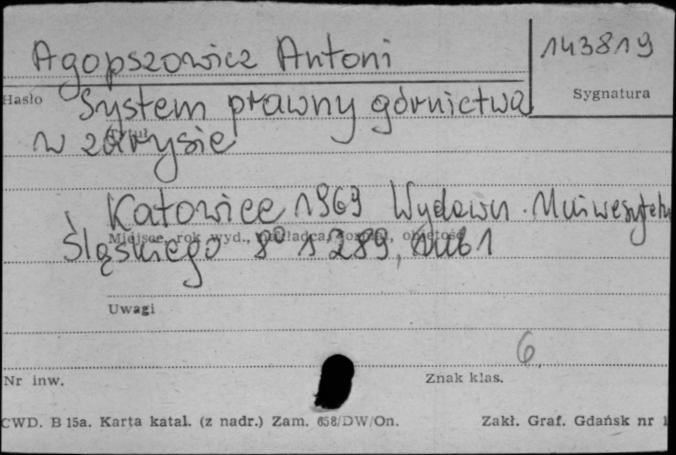 Agopszowicz Antoni
143819
Hasło
Sygnatura
System prawny górnictwa
Tytuł
w zarysie
Katowice 1969 Wydawn. Uniwersytetu
Miejsce, rok wyd., nakładca, format, objętość
Śląskiego 8° s 289, nlb 1
Uwagi
6
Nr inw.
Znak klas.
CWD. B 15a. Karta katal. (z nadr.) Zam. 658/DW/On.
Zakł. Graf. Gdańsk nr 1